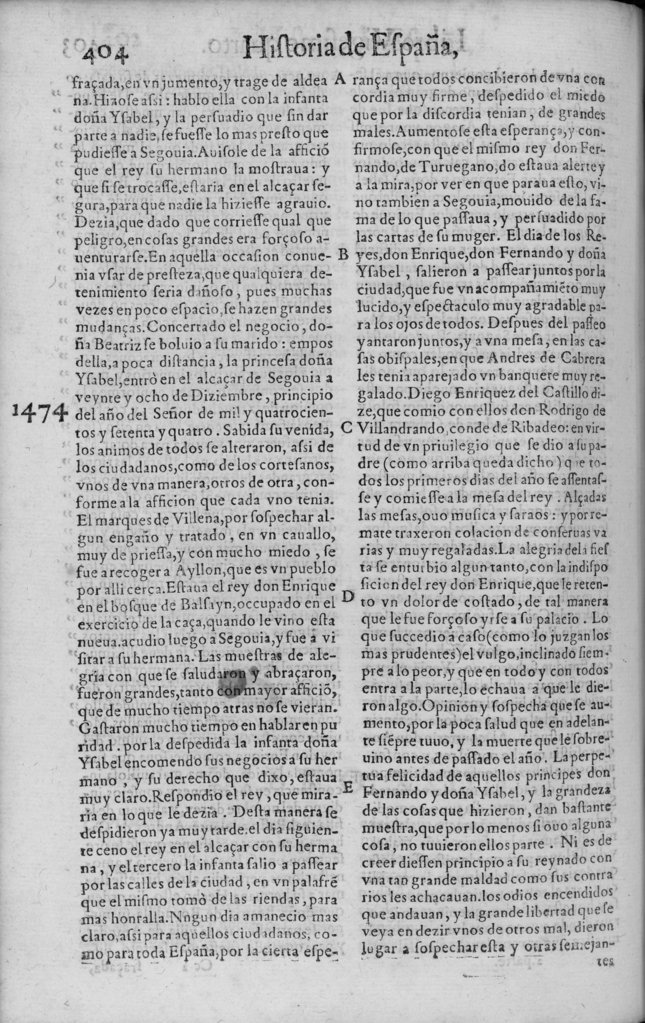 404 Historia de España,
fraçada, en vn jumento, y trage de aldea
na. Hiaose assi: hablo ella con la infanta
doña Ysabel, y la persuadio que sin dar
parte a nadie, se fuesse lo mas presto que
pudiesse a Segouia. Auisole de la afficiō
que el rey su hermano la mostraua: y
que si se trocasse, estaria en el alcaçar se-
gura, para que nadie la hiziesse agrauio.
Dezia, que dado que corriesse qual que
peligro, en cosas grandes era forçoso a-
uenturarse. En aquella occasion conue-
nia vsar de presteza, que qualquiera de-
tenimiento seria dañoso, pues muchas
vezes en poco espacio, se hazen grandes
mudanças. Concertado el negocio, do-
ña Beatriz se boluio a su marido: empos
della, a poca distancia, la princesa doña
Ysabel, entrò en el alcaçar de Segouia a
veynte y ocho de Diziembre, principio
1474
del año del Señor de mil y quatrocien-
tos y setenta y quatro. Sabida su venida,
los animos de todos se alteraron, assi de
los ciudadanos, como de los cortesanos,
vnos de vna manera, otros de otra, con-
forme a la afficion que cada vno tenia.
El marques de Villena, por sospechar al-
gun engaño y tratado, en vn cauallo,
muy de priessa, y con mucho miedo, se
fue a recoger a Ayllon, que es vn pueblo
por alli cerca. Estaua el rey don Enrique
en el bosque de Balsayn, occupado en el
exercicio de la caça, quando le vino esta
nueua. acudio luego a Segouia, y fue a vi
sitar a su hermana. Las muestras de ale-
gria con que se saludaron y abraçaron,
fueron grandes, tanto con mayor afficiō,
que de mucho tiempo atras no se vieran.
Gastaron mucho tiempo en hablar en pu
ridad. por la despedida la infanta doña
Ysabel encomendo sus negocios a su her
mano, y su derecho que dixo, estaua
muy claro. Respondio el rey, que mira-
ria en lo que le dezia. Desta manera se
despidieron ya muy tarde. el dia siguien-
te ceno el rey en el alcaçar con su herma
na, y el tercero la infanta salio a passear
por las calles de la ciudad, en vn palafrē
que el mismo tomò de las riendas, para
mas honralla. Nngun dia amanecio mas
claro, assi para aquellos ciudadanos, co-
mo para toda España, por la cierta espe-
A
B
C
D
E
rança que todos concibieron de vna con
cordia muy firme, despedido el miedo
que por la discordia tenian, de grandes
males. Aumentose esta esperança, y con-
firmose, con que el mismo rey don Fer-
nando, de Turuegano, do estaua alerte y
a la mira, por ver en que paraua esto, vi-
no tambien a Segouia, mouido de la fa-
ma de lo que passaua, y persuadido por
las cartas de su muger. El dia de los Re-
yes, don Enrique, don Fernando y doña
Ysabel, salieron a passear juntos por la
ciudad, que fue vn acompañamiēto muy
lucido, y espectaculo muy agradable pa-
ra los ojos de todos. Despues del passeo
yantaron juntos, y a vna mesa, en las ca-
sas obispales, en que Andres de Cabrera
les tenia aparejado vn banquete muy re-
galado. Diego Enriquez del Castillo di-
ze, que comio con ellos don Rodrigo de
Villandrando, conde de Ribadeo: en vir-
tud de vn priuilegio que se dio a su pa-
dre (como arriba queda dicho) que to-
dos los primeros dias del año se assentas-
se y comiesse a la mesa del rey. Alçadas
las mesas, ouo musica y saraos: y por re-
mate traxeron colacion de conseruas va
rias y muy regaladas. La alegria de la fies
ta se enturbio algun tanto, con la indispo
sicion del rey don Enrique, que le reten-
to vn dolor de costado, de tal manera
que le fue forçoso yrse a su palacio. Lo
que succedio a caso (como lo juzgan los
mas prudentes) el vulgo, inclinado siem-
pre a lo peor, y que en todo y con todos
entra a la parte, lo echaua a que le die-
ron algo. Opinion y sospecha que se au-
mento, por la poca salud que en adelan-
te siēpre tuuo, y la muerte que le sobre-
uino antes de passado el año. La perpe-
tua felicidad de aquellos principes don
Fernando y doña Ysabel, y la grandeza
de las cosas que hizieron, dan bastante
muestra, que por lo menos si ouo alguna
cosa, no tuuieron ellos parte. Ni es de
creer diessen principio a su reynado con
vna tan grande maldad como sus contra
rios les achacauan. los odios encendidos
que andauan, y la grande libertad que se
veya en dezir vnos de otros mal, dieron
lugar a sospechar esta y otras semejan-
tes